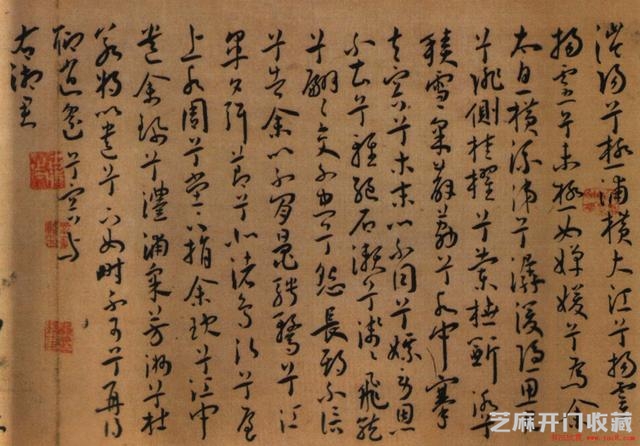 涔陽兮極浦橫大江兮揚靈
揚靈兮未極女嬋媛兮為余
太息橫流涕兮潺湲隱思君
兮陫側桂櫂兮蘭枻斲冰兮
積雪采薜荔兮水中搴
芙蓉兮木末心不同兮媒勞恩
不甚兮輕絕石瀨兮淺淺飛龍
兮翩翩交不忠兮怨長期不信
兮告余以不閒鼂騁騖兮江
皋夕弭節兮北渚鳥次兮屋
上水周兮堂下捐余玦兮江中
遺余珮兮澧浦采芳洲兮杜
若將以遺兮下女時不可兮再得
聊逍遙兮容與
右湘君
芝麻开门收藏